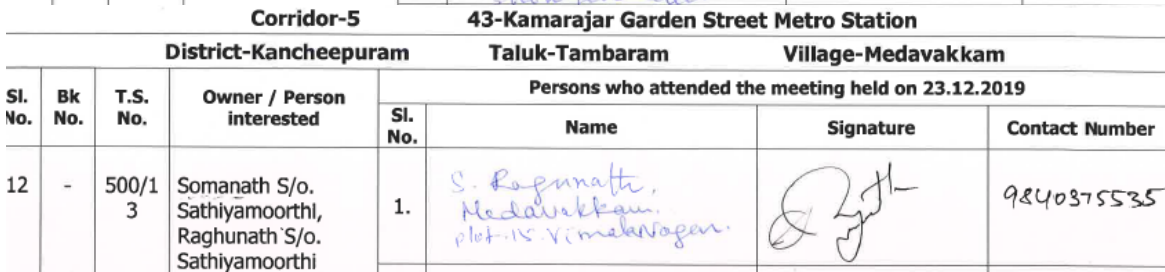 Corridor-5 43-Kamarajar Garden Street Metro Station
District-Kancheepuram Taluk-Tambaram Village-Medavakkam
Sl. No. Bk No. T.S. No. Owner / Person interested Persons who attended the meeting held on 23.12.2019
Sl. No. Name Signature Contact Number
12 - 500/13 Somanath S/o. Sathiyamoorthi, Raghunath S/o. Sathiyamoorthi
1. S. Ragunath,
Medavakkam.
plot.15. Vimalanagar.
9840375535